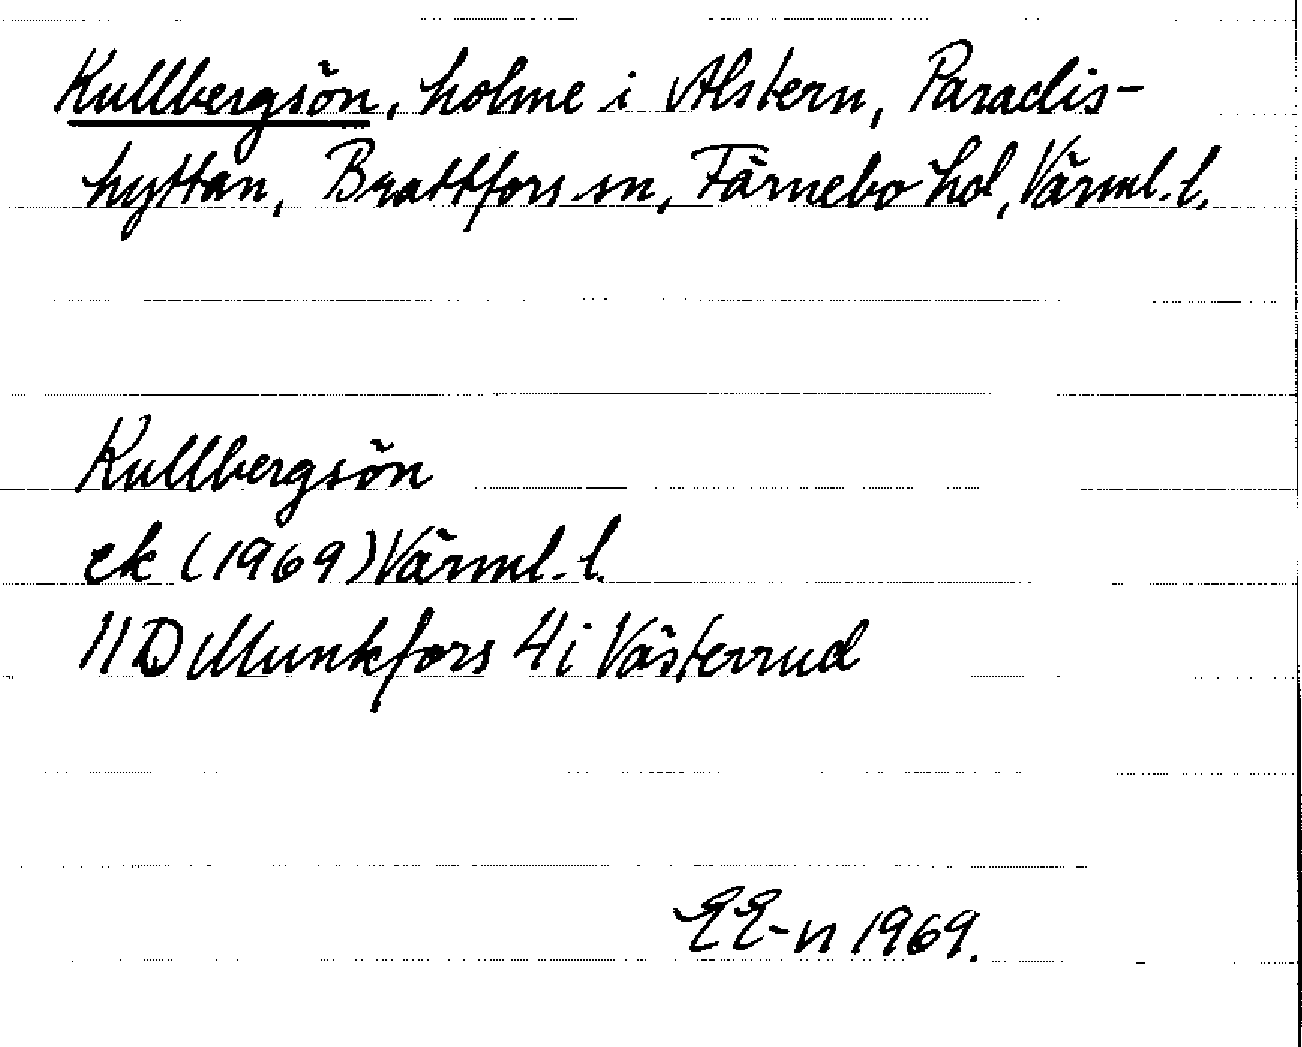 Kullbergsön, holme i Alstern, Paradis-
hyttan, Brattfors sn, Färnebo hd, Värml. l.
Kullbergsön
ek (1969) Värml. l.
11D Munkfors 4i Västerrud
EE-n 1969.